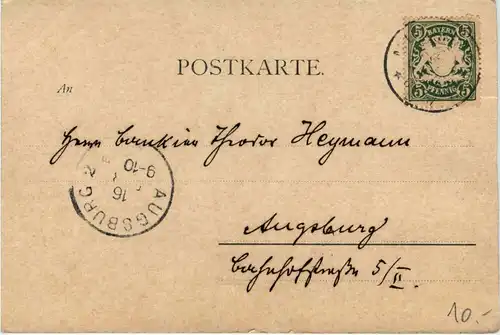 5 BAYERN 5
5 PFENNIG 5
POSTKARTE.
An
Herrn Bankier Theodor Heymann
AUGSBURG 2
16
9-10
Augsburg
Bahnhofstraße 5/II.
10.-